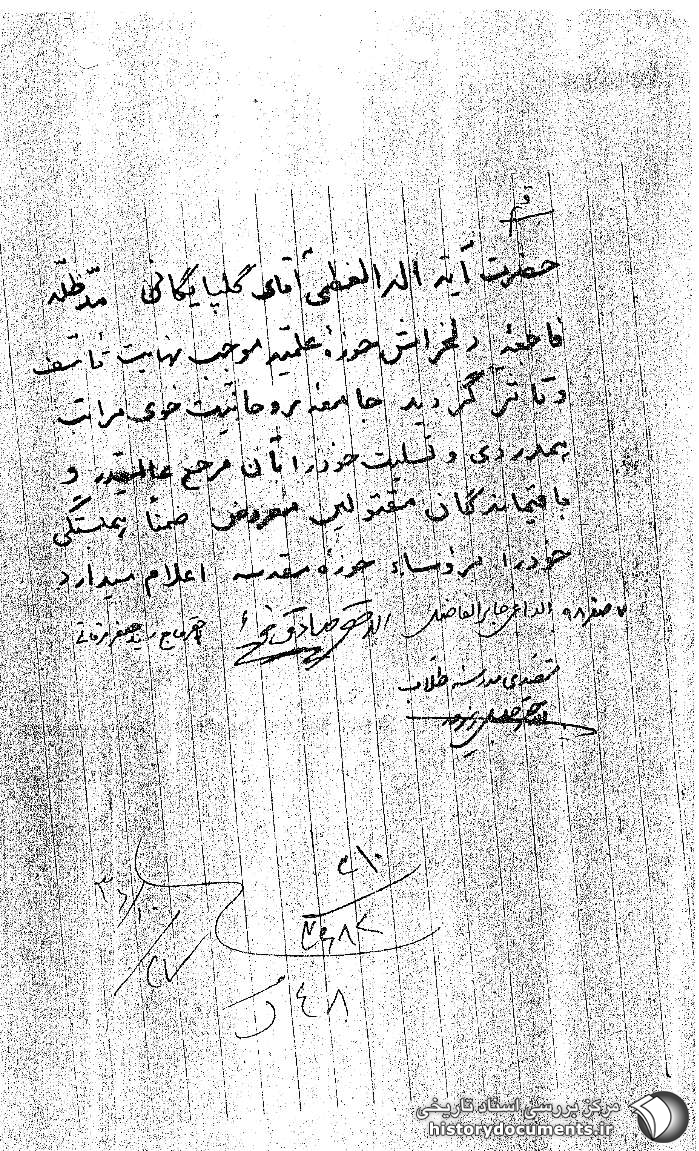 قم
حضرت آیة الله العظمی آقای گلپایگانی مدّ ظلّه
فاجعهٔ دلخراش حوزهٔ علمیه موجب نهایت تأسف
و تأثر گردید جامعه روحانیت خوی مراتب
همدردی و تسلیت خود را بآن مرجع عالیقدر و
باقیماندگان مقتولین معروض ضمناً همبستگی
خود را برؤساء حوزهٔ مقدسه اعلام میدارد
۷ صفر ۹۸ الداعی جابر الفاضلی الاحقر صادق
متصدی مدرسه طلاب
۴۸
مرکز بررسی اسناد تاریخی
historydocuments.ir